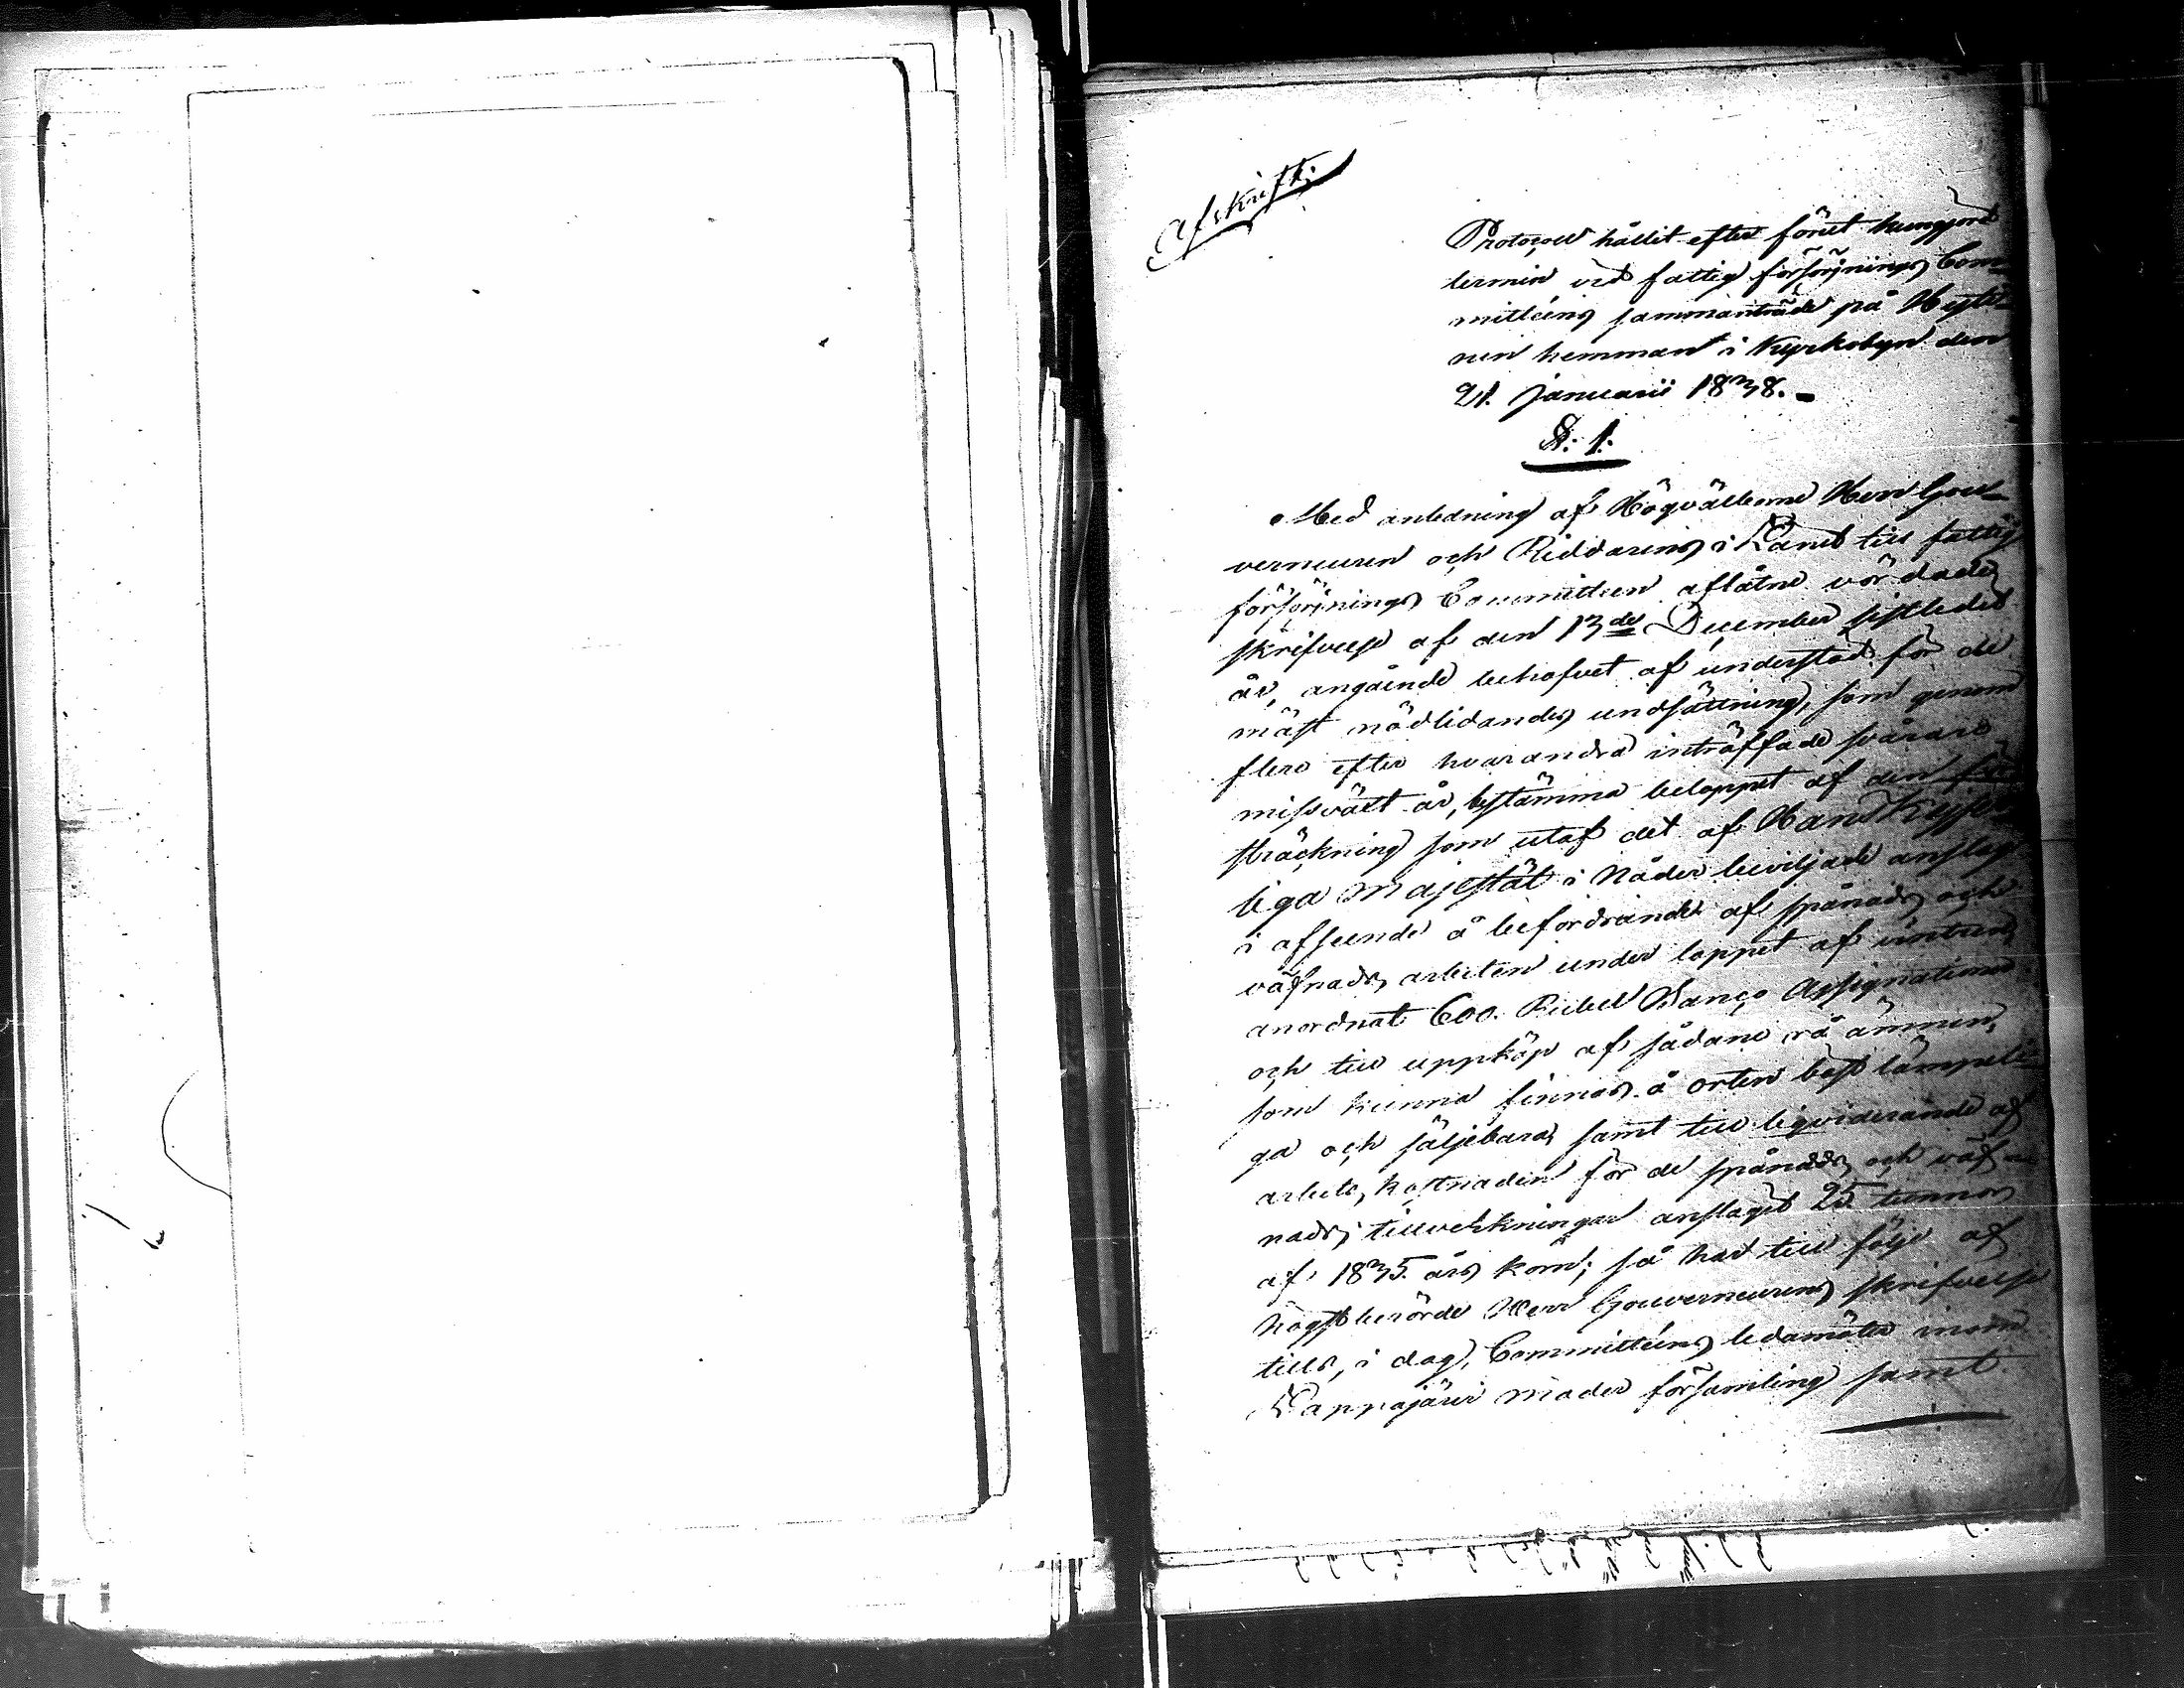 Afskrift;
Protocoll hållit efter förut kungjord
termin vid fattig försörjnings Com¬
mitténs sammanträde på Hyyti¬
nen hemman i Kyrkobyn den
21. Januarii 1838. –
§. 1.
Med anledning af Högvälborne Herr Gou¬
verneuren och Riddarens i Länet till fattig
försörjnings Committeen aflåtne vördade
skrifvelse af den 13de December sistledet
år, angående behofvet af understöd för de
mäst nödlidandes undsättning, som genom
flere efter hvarandra inträffade svårare
missväxt år, bestämma beloppet af den för¬
sträckning som utaf det af Hans Kejser¬
liga Majestät i Nåder beviljade anslag
i afseende å befordrande af spånads och
väfnads arbeten under loppet af vintern
anordnat 600. Rubel Banco Assignationer
och till uppköp af sådane rå ämnen,
som kunna finnas å orten bäst lämpeli¬
ga och säljebara, samt till liqviderande af
arbets, kostnaden för de spånads och väf¬
nads, tillverkningar anslagit 25 tunnor
af 1835. års korn; så had till följe af
högstberörde Herr Gouverneurens skrifvelse
tills, i dag, Committéens ledamöter inom
Lappajärvi moder församling samt